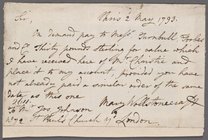 Sir, Paris 2 May 1793.
On demand pay to Messrs Turnbull Forbes
and Co. Thirty pounds Sterling for value which
I have received here of Mr. Christie and
place it to my account, provided you have
not already paid a similar order of the same
date to Mrs
Mary Wollstonecraft
To Mr Jos. Johnson
No. 72 St Pauls Church Yd London.